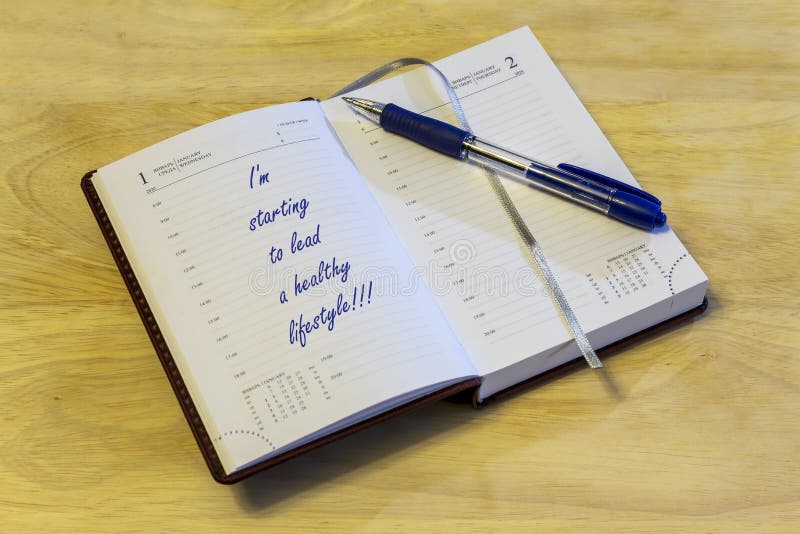 1
ЯНВАРЬ | JANUARY
СРЕДА | WEDNESDAY
I'm
starting
to lead
a healthy
lifestyle!!!
8:00
9:00
10:00
11:00
12:00
13:00
14:00
15:00
16:00
17:00
18:00
19:00
20:00
ЯНВАРЬ / JANUARY
ЯНВАРЬ | JANUARY
ЧЕТВЕРГ | THURSDAY
2
8:00
9:00
10:00
11:00
12:00
13:00
14:00
15:00
16:00
17:00
18:00
19:00
20:00
ЯНВАРЬ / JANUARY
dreamstime